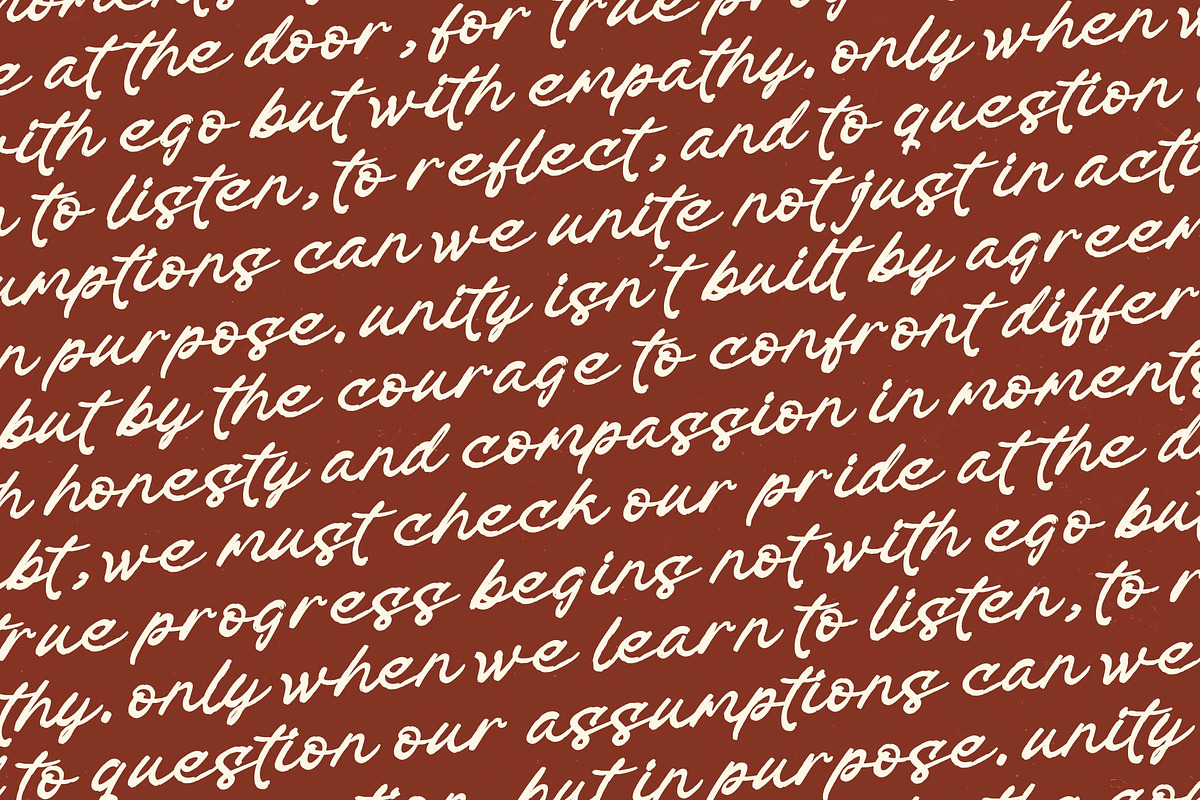 moments
e at the door, for true prog
with ego but with empathy. only when w
n to listen, to reflect, and to question
umptions can we unite not just in acti
n purpose. unity isn't built by agreem
but by the courage to confront differ
h honesty and compassion in moments
bt, we must check our pride at the d
true progress begins not with ego bu
thy. only when we learn to listen, to r
to question our assumptions can we
but in purpose. unity